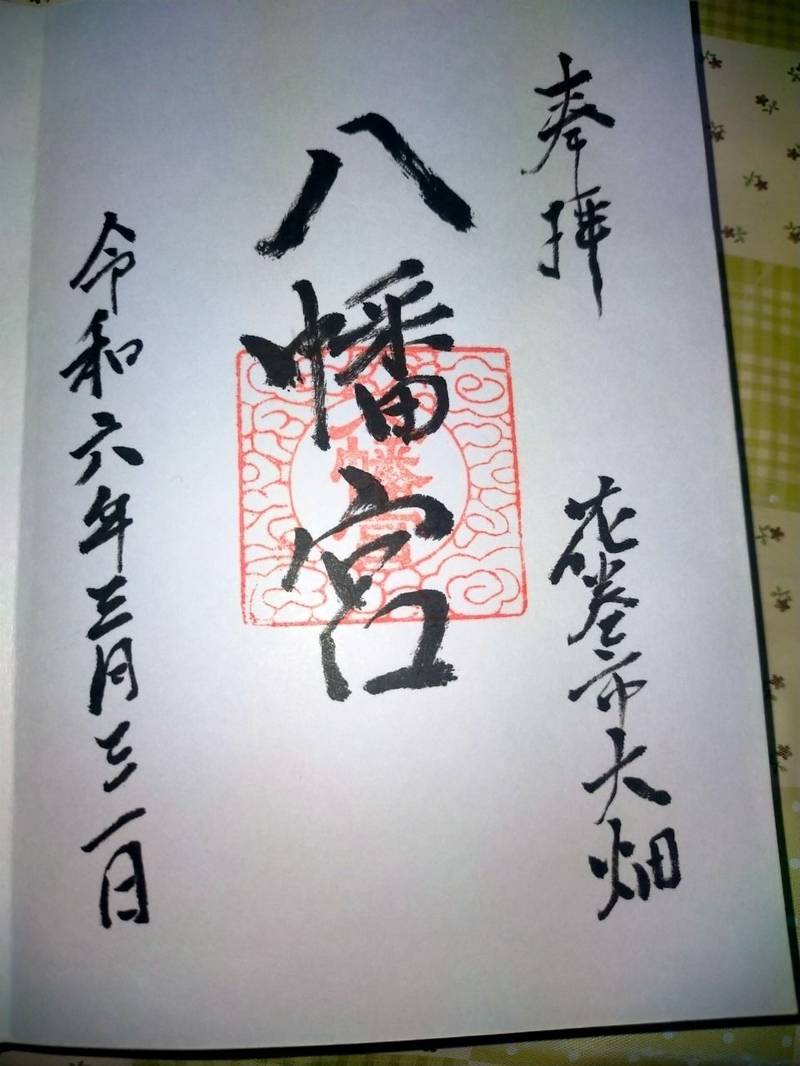 奉拝
花巻市大畑
八幡宮
八幡宮
令和六年三月三一日